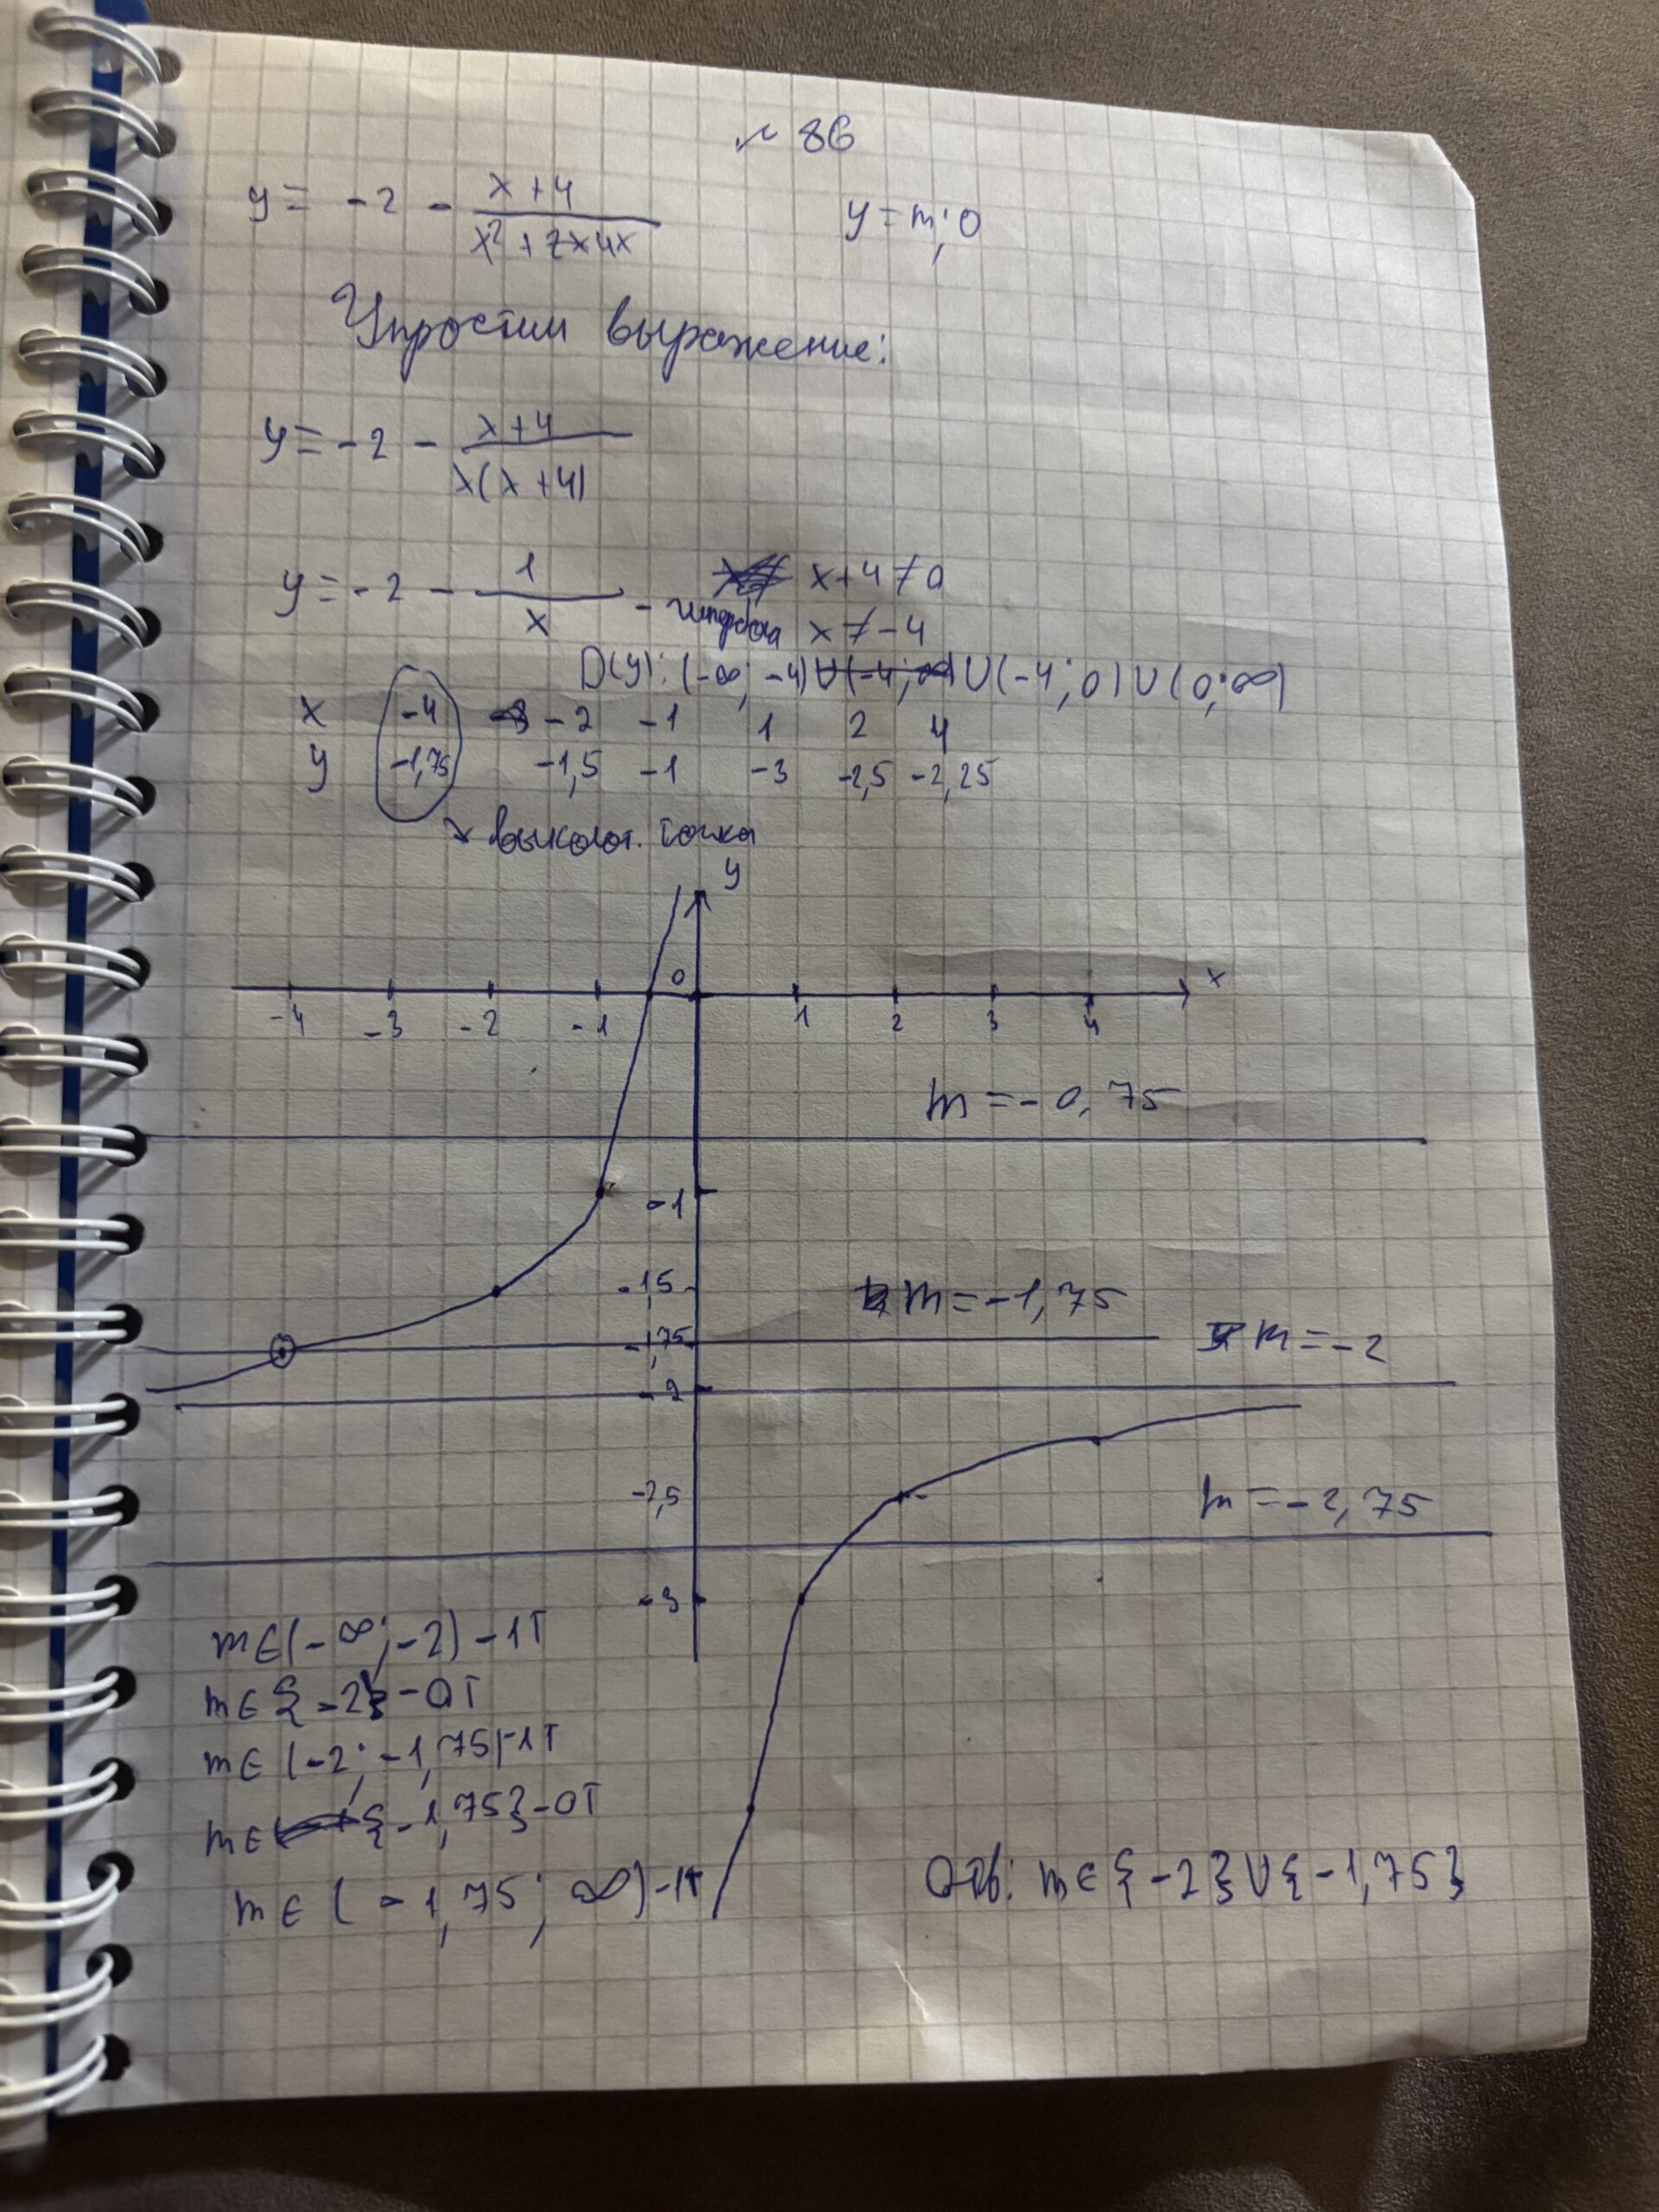 № 86
y = -2 - (x+4)/(x²+4x) y = m; 0
Упростим выражение:
y = -2 - (x+4)/(x(x+4))
y = -2 - 1/x - гипербола
x+4≠0
x≠-4
D(y): (-∞; -4)∪(-4; 0)∪(0; ∞)
x -4 -2 -1 1 2 4
y -1,75 -1,5 -1 -3 -2,5 -2,25
выколот. точка
y
0 x
-4 -3 -2 -1 1 2 3 4
m = -0,75
-1
-1,5
m = -1,75
-1,75
m = -2
-2
-2,5
m = -2,75
-3
m∈(-∞; -2) - 1т
m∈{-2} - 0т
m∈(-2; -1,75) - 1т
m∈{-1,75} - 0т
m∈(-1,75; ∞) - 1т
Отв: m∈{-2}∪{-1,75}